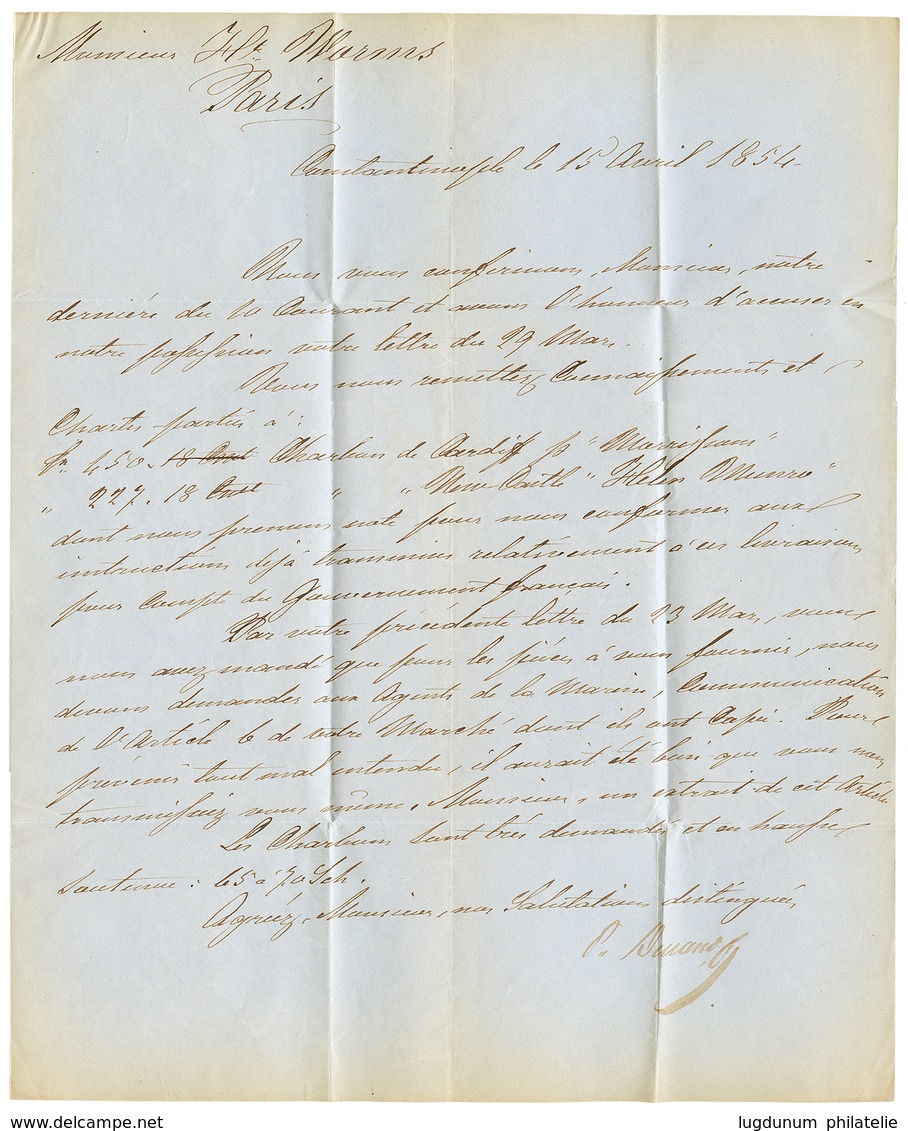 Monsieur Hte Worms
Paris
Constantinople le 15 Avril 1854
Nous vous confirmons, Monsieur, notre
dernière du 10 Courant et avons l'honneur d'accuser en
notre possession votre lettre du 29 Mars.
Vous nous remettez Connaissements et
Chartes parties à :
Tn 450 - 18 Cwt Charbon de Cardiff p "Marrigham"
" 227. 18 Cwt " " New Castle "Helen Munro"
dont nous prenons note pour nous conformer aux
instructions déjà transmises relativement à ces livraisons
pour compte du Gouvernement français.
Par votre précédente lettre du 23 Mars, vous
nous avez mandé que pour les pièces à vous fournir, nous
devons demander aux Agents de la Marine, Communication
de l'Article 6 de votre Marché dont ils ont Copie. Pour
prévenir tout mal entendu, il aurait été bien que vous nous
transmissiez vous même, Monsieur, un extrait de cet Article
Les Charbons sont très demandés et en hausse
soutenue : 65 à 70 Sch.
Agréez, Monsieur, nos Salutations distinguées,
P.
lugdunum philatelie